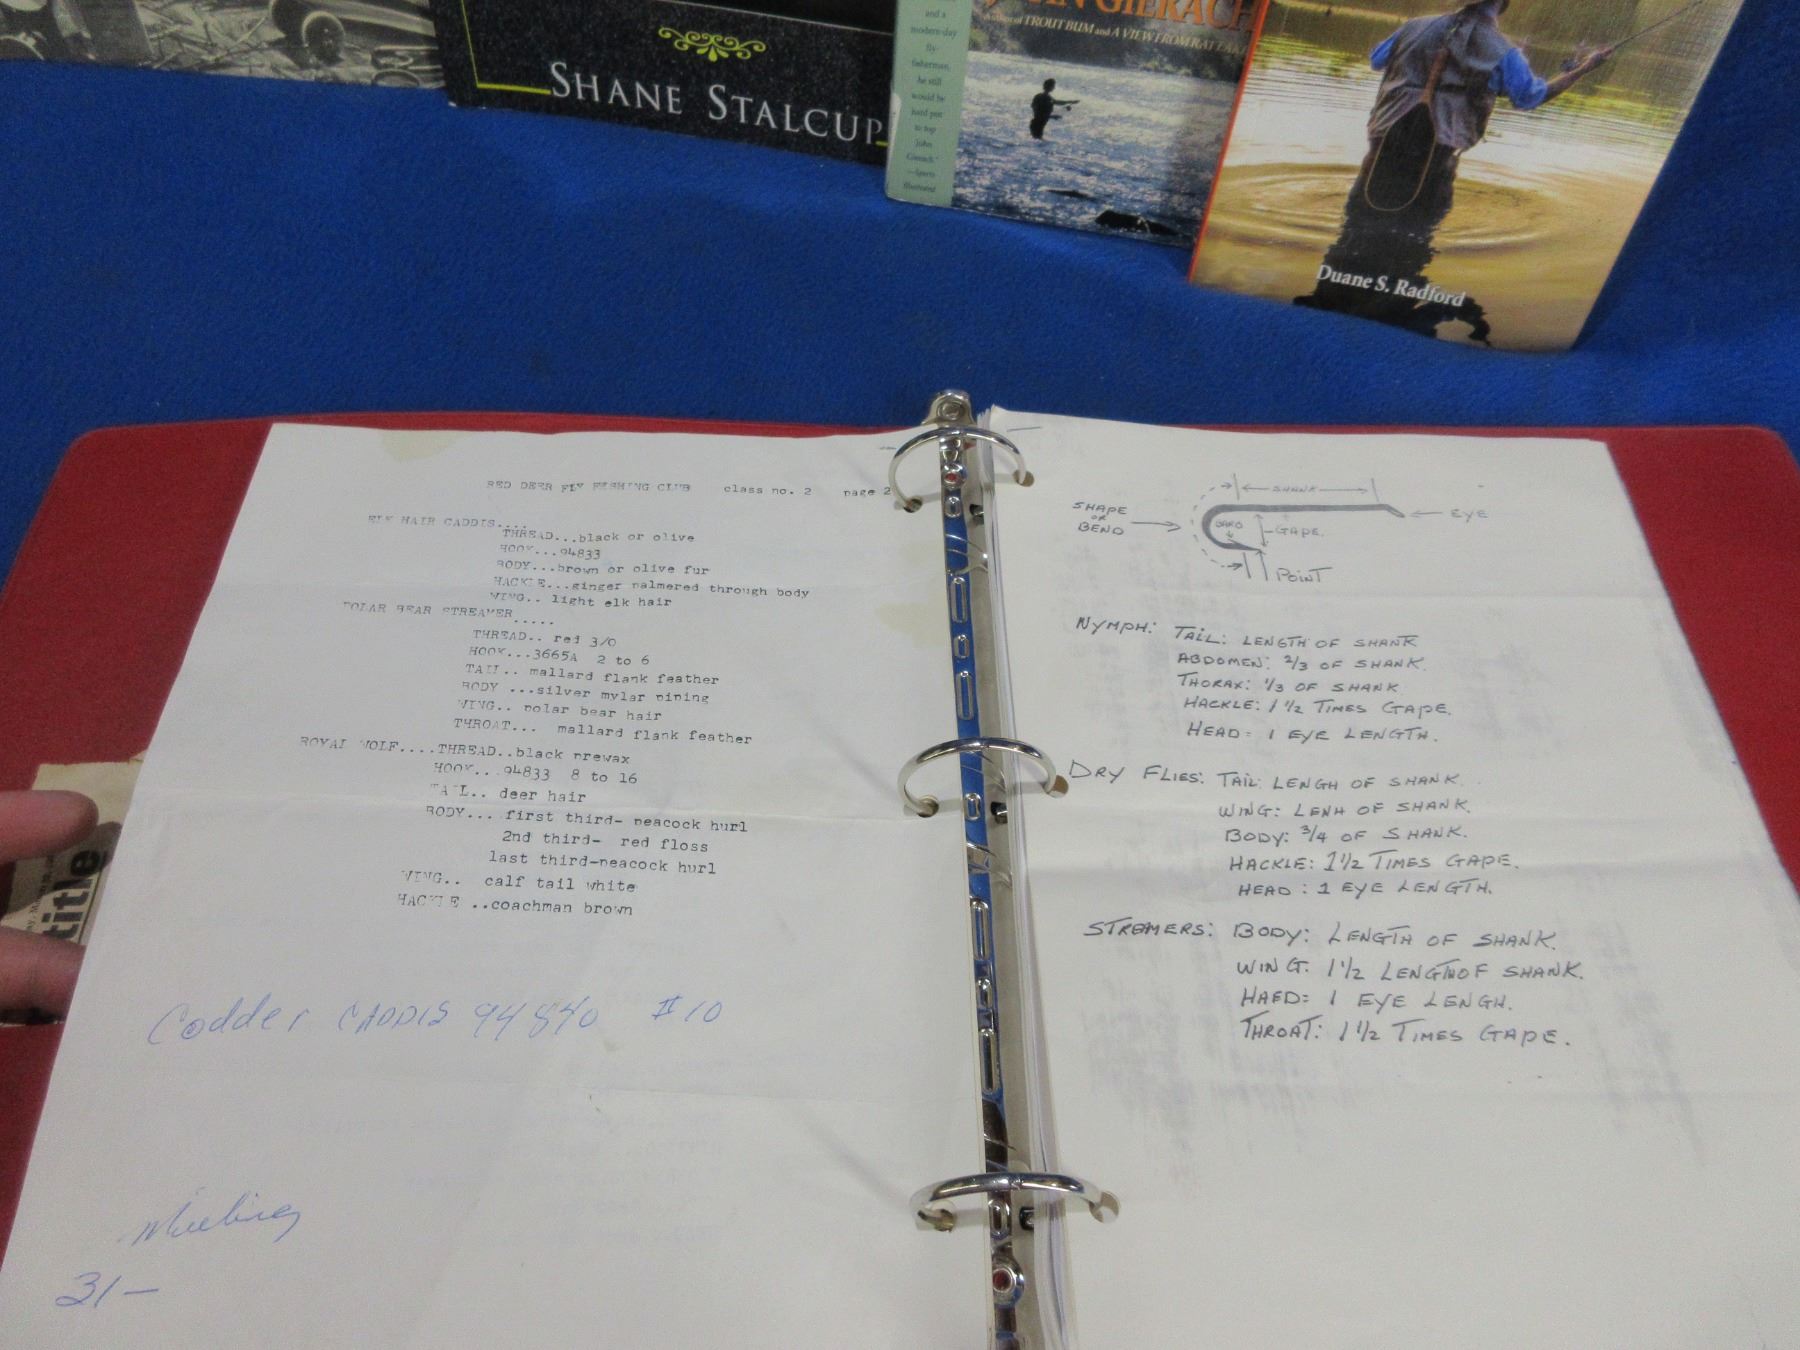 SHANE STALCUP
and a
modern-day
fly-
fisherman,
he still
would be
hard put
to top
John
Gierach."
—Sports
Illustrated
GIERACH
Author of TROUT BUM and A VIEW FROM RAT LAKE
Duane S. Radford
title
RED DEER FLY FISHING CLUB class no. 2 page 2
ELK HAIR CADDIS....
THREAD...black or olive
HOOK...94833
BODY...brown or olive fur
HACKLE...ginger palmered through body
WING.. light elk hair
POLAR BEAR STREAMER.....
THREAD.. red 3/0
HOOK...3665A 2 to 6
TAIL.. mallard flank feather
BODY ...silver mylar pining
WING.. polar bear hair
THROAT... mallard flank feather
ROYAL WOLF....THREAD..black prewax
HOOK...94833 8 to 16
TAIL.. deer hair
BODY... first third- peacock hurl
2nd third- red floss
last third-peacock hurl
WING.. calf tail white
HACKLE ..coachman brown
Codder CADDIS 94840 #10
31-
SHANK
SHAPE
OR
BEND
BARB
GAPE.
EYE
POINT
NYMPH: TAIL: LENGTH OF SHANK
ABDOMEN: 2/3 OF SHANK.
THORAX: 1/3 OF SHANK
HACKLE: 1 1/2 TIMES GAPE.
HEAD= 1 EYE LENGTH.
DRY FLIES: TAIL LENGH OF SHANK.
WING: LENH OF SHANK.
BODY: 3/4 OF SHANK.
HACKLE: 1 1/2 TIMES GAPE.
HEAD: 1 EYE LENGTH.
STREAMERS: BODY: LENGTH OF SHANK.
WING. 1 1/2 LENGTHOF SHANK.
HAED= 1 EYE LENGH.
THROAT: 1 1/2 TIMES GAPE.